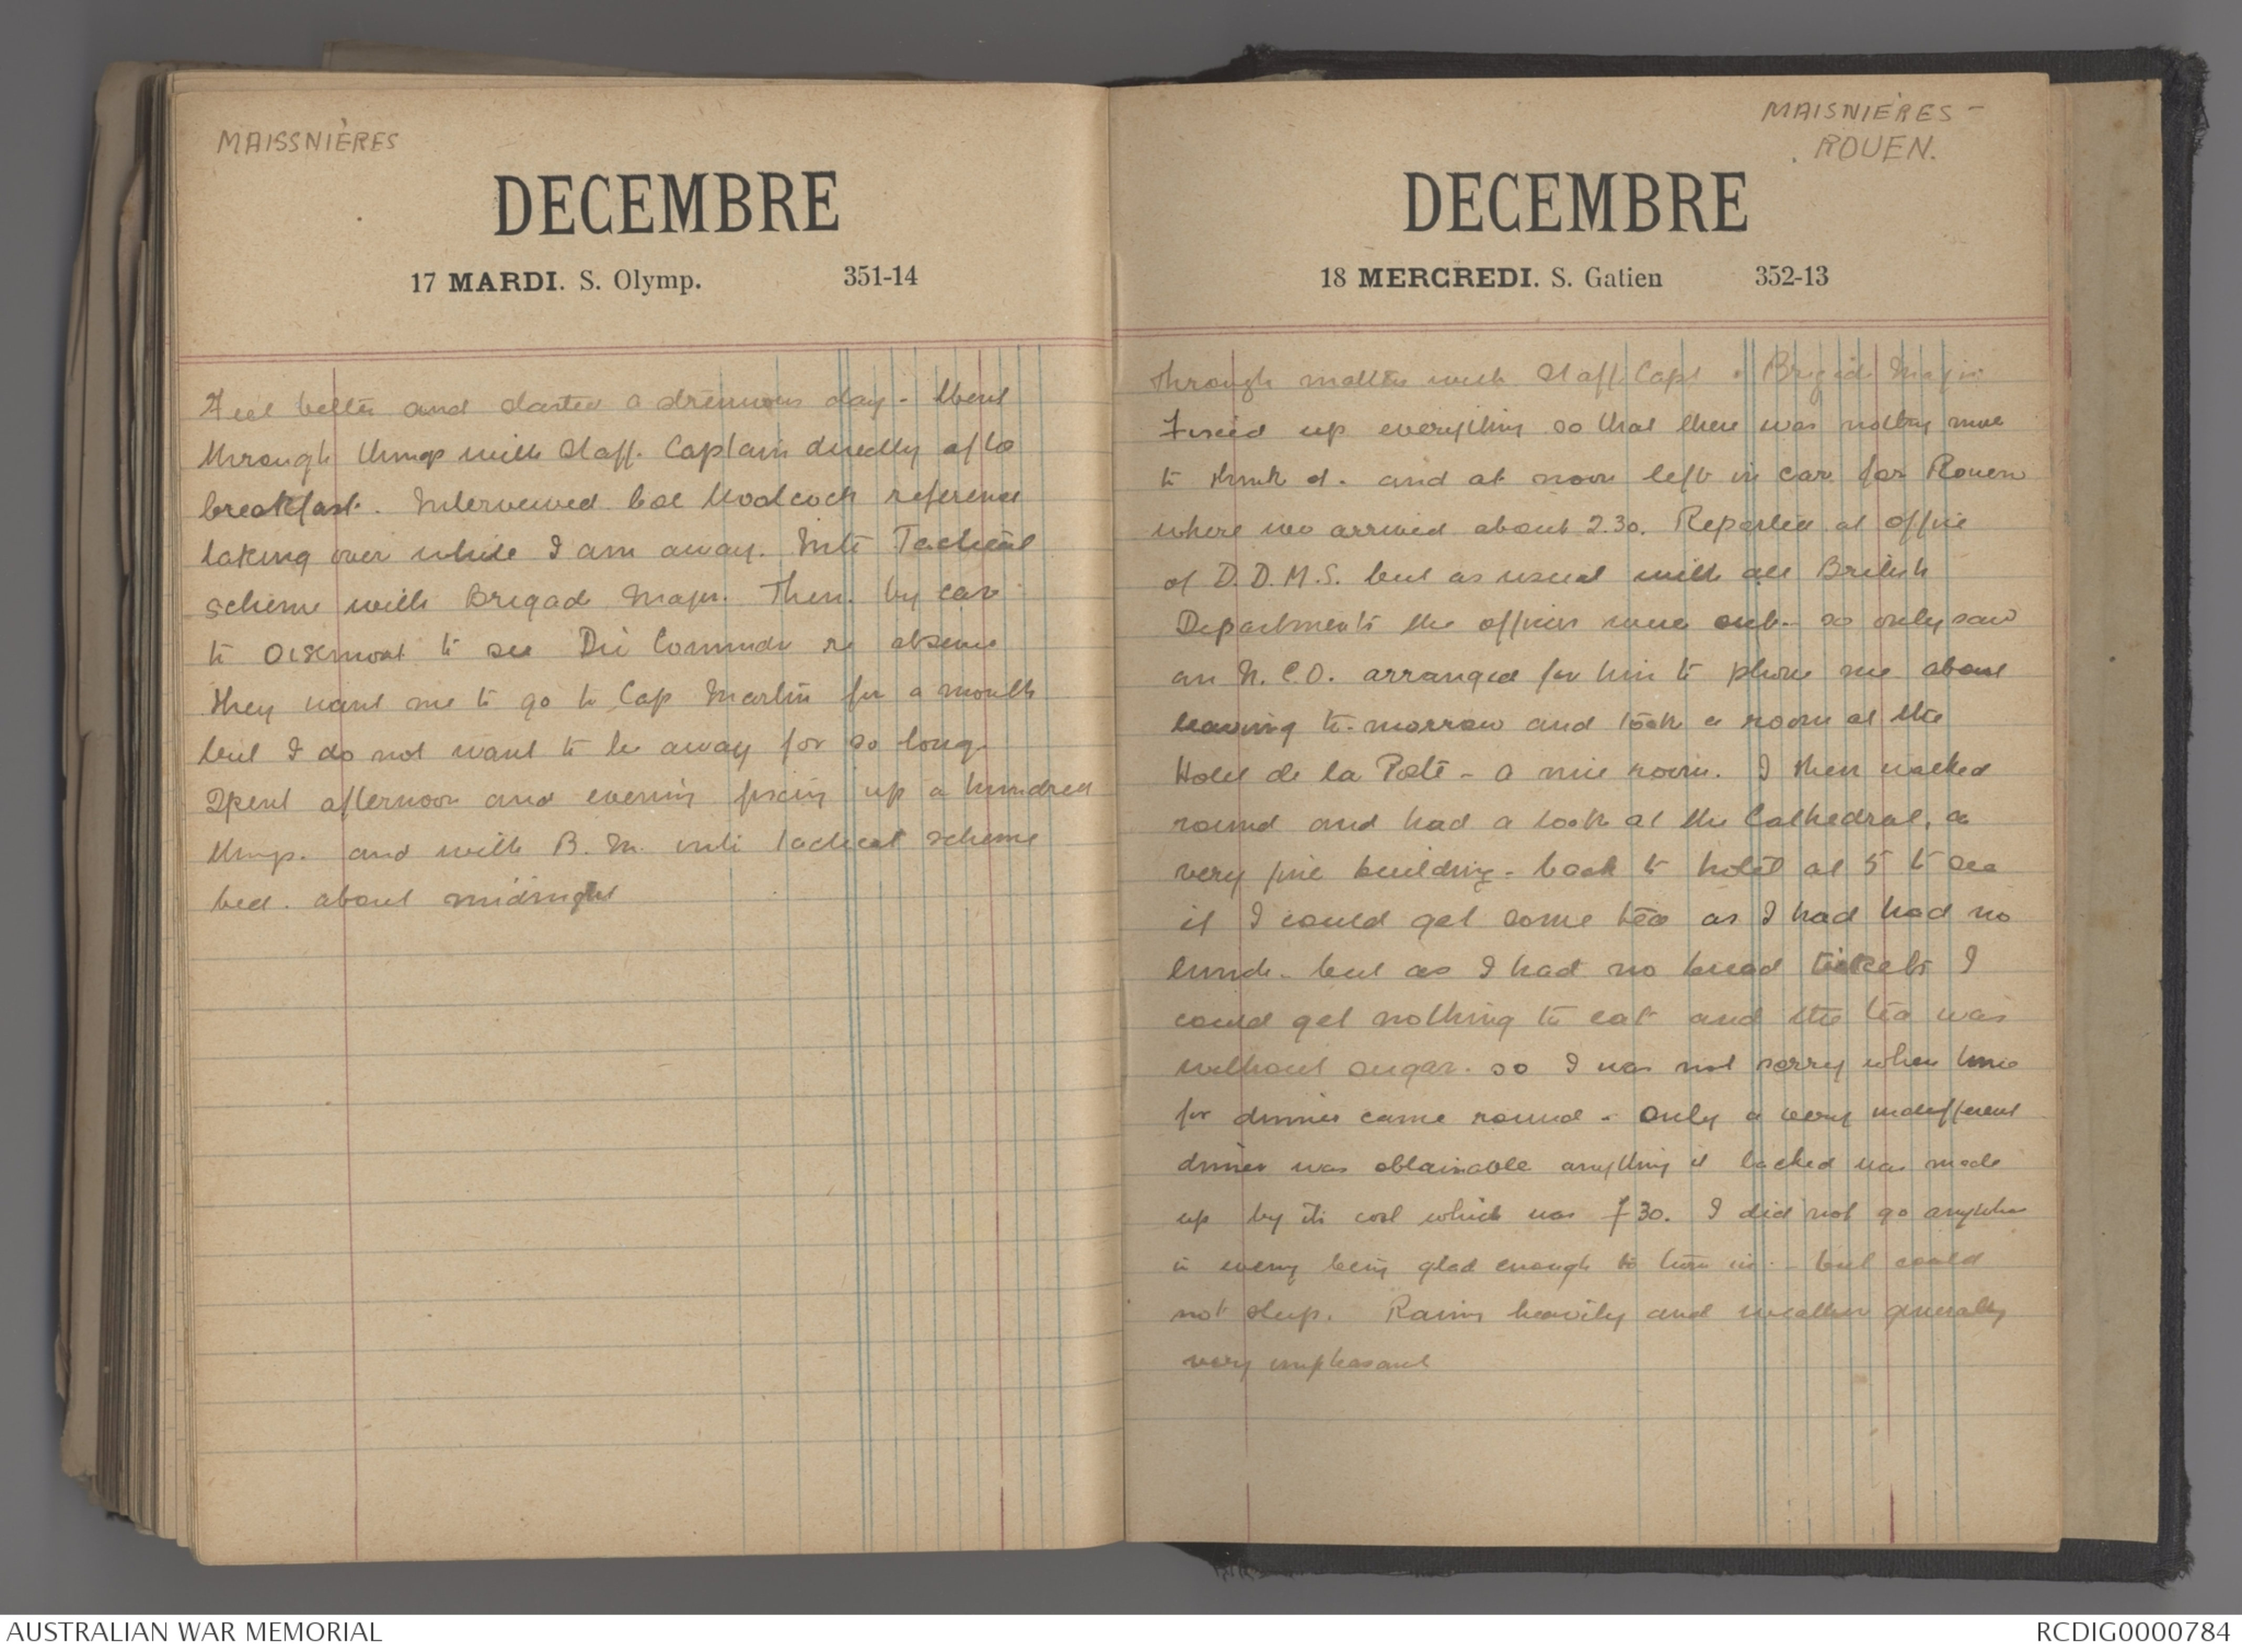 MAISSNIÈRES
DECEMBRE
17 MARDI. S. Olymp. 351-14
Feel better and started a strenuous day. Went
through things with Staff. Captain directly after
breakfast. Interviewed Col Woolcock reference
taking over while I am away. Into Tactical
scheme with Brigade Major. Then. by car
to Oisemont to see Div Commdr re absence
they want me to go to Cap Martin for a month
but I do not want to be away for so long.
Spent afternoon and evening fixing up a hundred
things. and with B. M. into tactical scheme
bed. about midnight
MAISNIÈRES -
ROUEN.
DECEMBRE
18 MERCREDI. S. Gatien 352-13
through matters with Staff Capt & Brigade Major
Fixed up everything so that there was nothing more
to think of. and at noon left in car for Rouen
where we arrived about 2.30. Reported at office
of D.D.M.S. but as usual with all British
Departments the officers were out. so only saw
an N.C.O. arranged for him to phone me about
leaving to-morrow and took a room at the
Hotel de la Poste - a nice room. I then walked
round and had a look at the Cathedral, a
very fine building - back to hotel at 5 to see
if I could get some tea as I had had no
lunch - but as I had no bread tickets I
could get nothing to eat and the tea was
without sugar. so I was not sorry when time
for dinner came round - only a very indifferent
dinner was obtainable anything it lacked was made
up by its cost which was f 30. I did not go anywhere
in eveng being glad enough to turn in - but could
not sleep. Raining heavily and weather generally
very unpleasant
AUSTRALIAN WAR MEMORIAL
RCDIG0000784